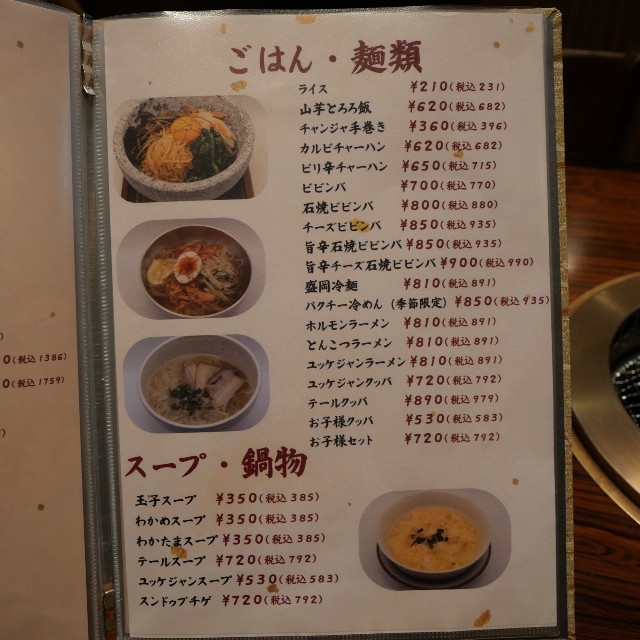 ごはん・麺類
ライス ¥210(税込231)
山芋とろろ飯 ¥620(税込682)
チャンジャ手巻き ¥360(税込396)
カルビチャーハン ¥620(税込682)
ピリ辛チャーハン ¥650(税込715)
ビビンバ ¥700(税込770)
石焼ビビンバ ¥800(税込880)
チーズビビンバ ¥850(税込935)
旨辛石焼ビビンバ ¥850(税込935)
旨辛チーズ石焼ビビンバ ¥900(税込990)
盛岡冷麺 ¥810(税込891)
パクチー冷めん(季節限定) ¥850(税込935)
ホルモンラーメン ¥810(税込891)
とんこつラーメン ¥810(税込891)
ユッケジャンラーメン ¥810(税込891)
ユッケジャンクッパ ¥720(税込792)
テールクッパ ¥890(税込979)
お子様クッパ ¥530(税込583)
お子様セット ¥720(税込792)
スープ・鍋物
玉子スープ ¥350(税込385)
わかめスープ ¥350(税込385)
わかたまスープ ¥350(税込385)
テールスープ ¥720(税込792)
ユッケジャンスープ ¥530(税込583)
スンドゥブチゲ ¥720(税込792)
0(税込1386)
0(税込1759)